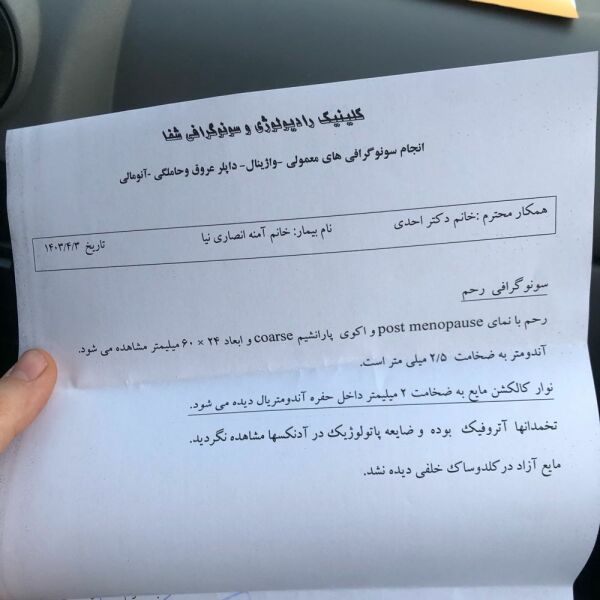 کلینیک رادیولوژی و سونوگرافی شفا
انجام سونوگرافی های معمولی -واژینال- داپلر عروق وحاملگی -آنومالی
همکار محترم :خانم دکتر احدی نام بیمار: خانم آمنه انصاری نیا تاریخ ۱۴۰۳/۴/۳
سونوگرافی رحم
رحم با نمای post menopause و اکوی پارانشیم coarse و ابعاد ۲۴ × ۶۰ میلیمتر مشاهده می شود.
آندومتر به ضخامت ۲/۵ میلی متر است.
نوار کالکشن مایع به ضخامت ۲ میلیمتر داخل حفره آندومتریال دیده می شود.
تخمدانها آتروفیک بوده و ضایعه پاتولوژیک در آدنکسها مشاهده نگردید.
مایع آزاد در کلدوساک خلفی دیده نشد.